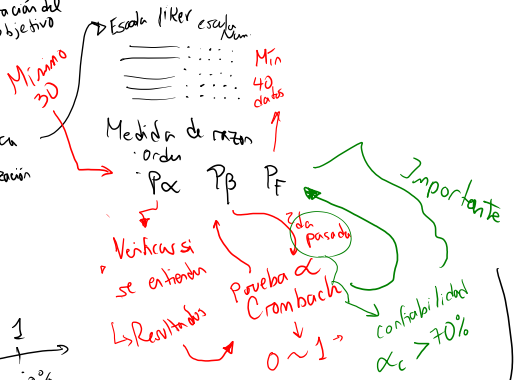 objetivo
Escala liker escala
Num.
Mínimo
30
Min
40
datos
Medida de razon
orden
Pα Pβ PF
Importante
2da
pasada
Verificar si
se entienden
Prueba α
Crombach
↳ Resultados
0 ~ 1
confiabilidad
αc > 70%
1